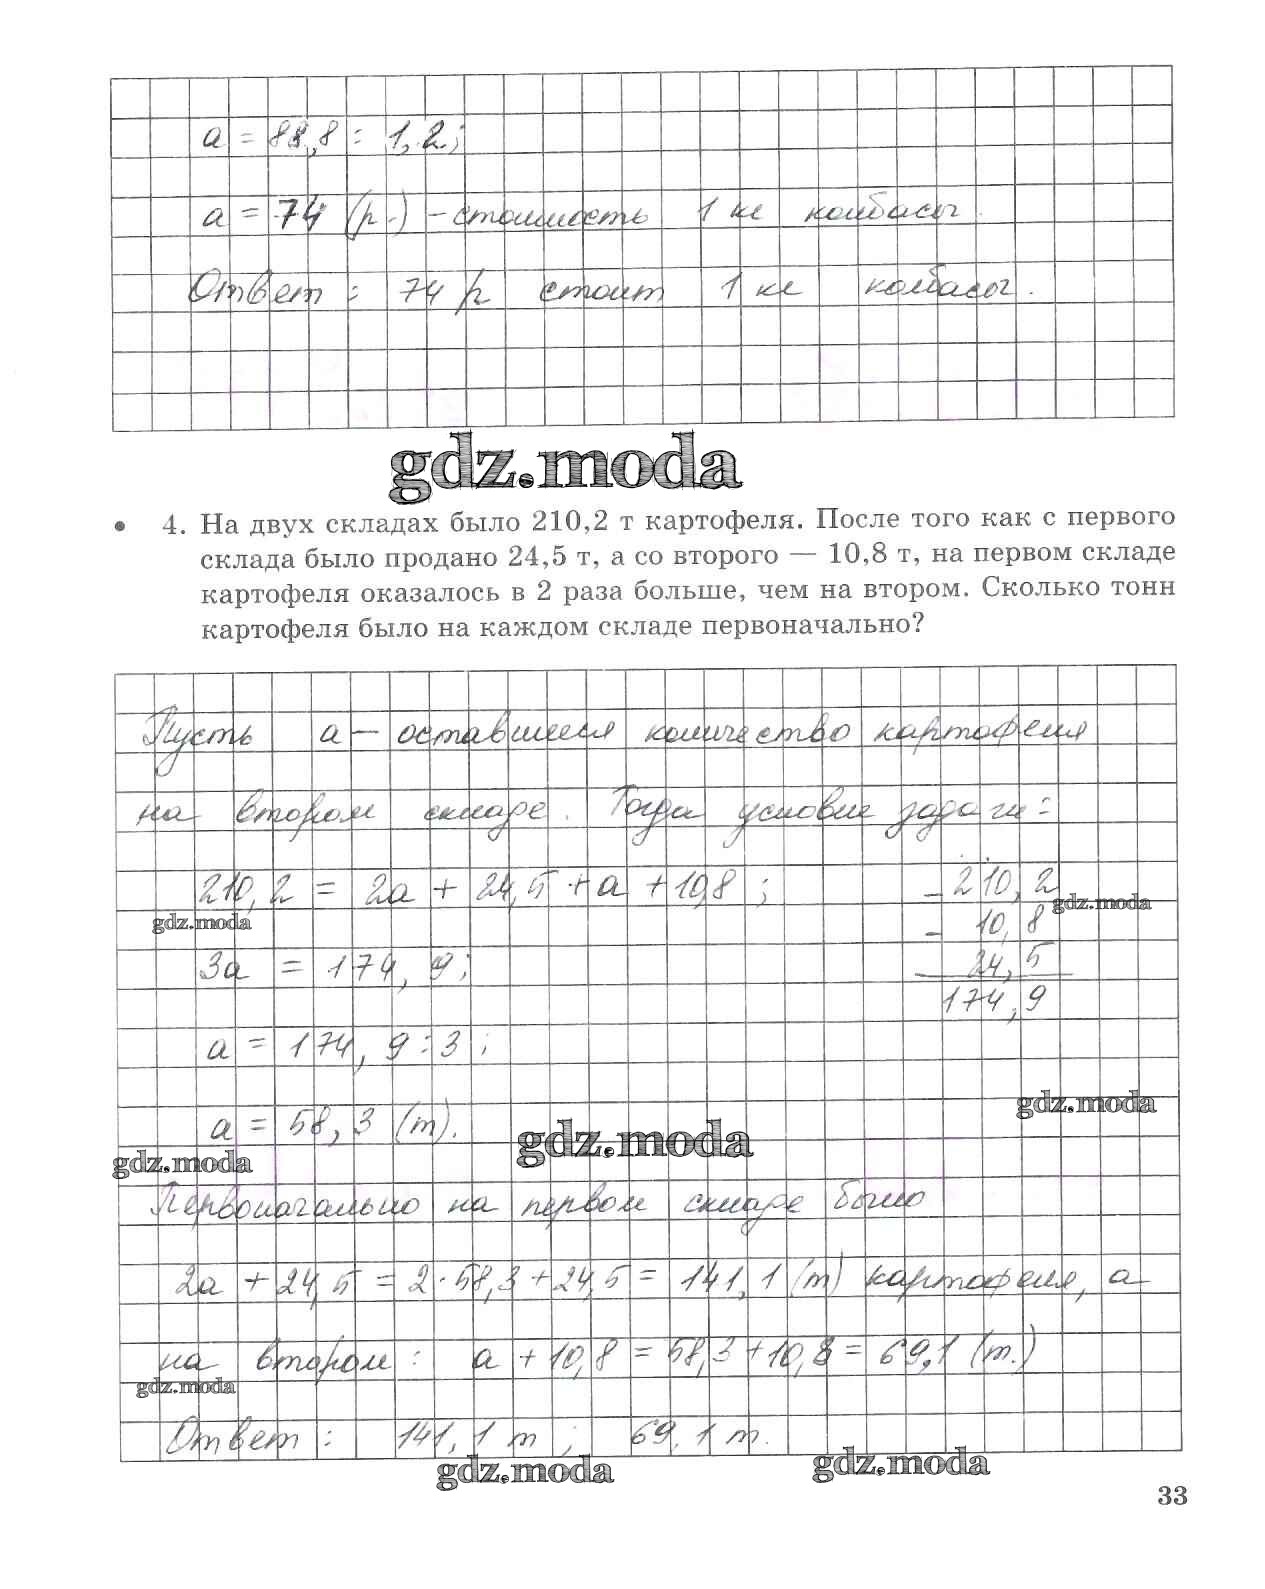 a = 88,8 : 1,2;
a = 74 (р.) – стоимость 1 кг колбасы.
Ответ: 74 р стоит 1 кг колбасы.
gdz.moda
• 4. На двух складах было 210,2 т картофеля. После того как с первого
склада было продано 24,5 т, а со второго — 10,8 т, на первом складе
картофеля оказалось в 2 раза больше, чем на втором. Сколько тонн
картофеля было на каждом складе первоначально?
Пусть a – оставшееся количество картофеля
на втором складе. Тогда условие задачи:
210,2 = 2a + 24,5 + a + 10,8;
- 210,2
gdz.moda
gdz.moda
- 10,8
3a = 174,9;
24,5
174,9
a = 174,9 : 3;
gdz.moda
a = 58,3 (т).
gdz.moda
gdz.moda
Первоначально на первом складе было
2a + 24,5 = 2·58,3 + 24,5 = 141,1 (т) картофеля, а
на втором: a + 10,8 = 58,3 + 10,8 = 69,1 (т.)
gdz.moda
Ответ: 141,1 т; 69,1 т.
gdz.moda
gdz.moda
33